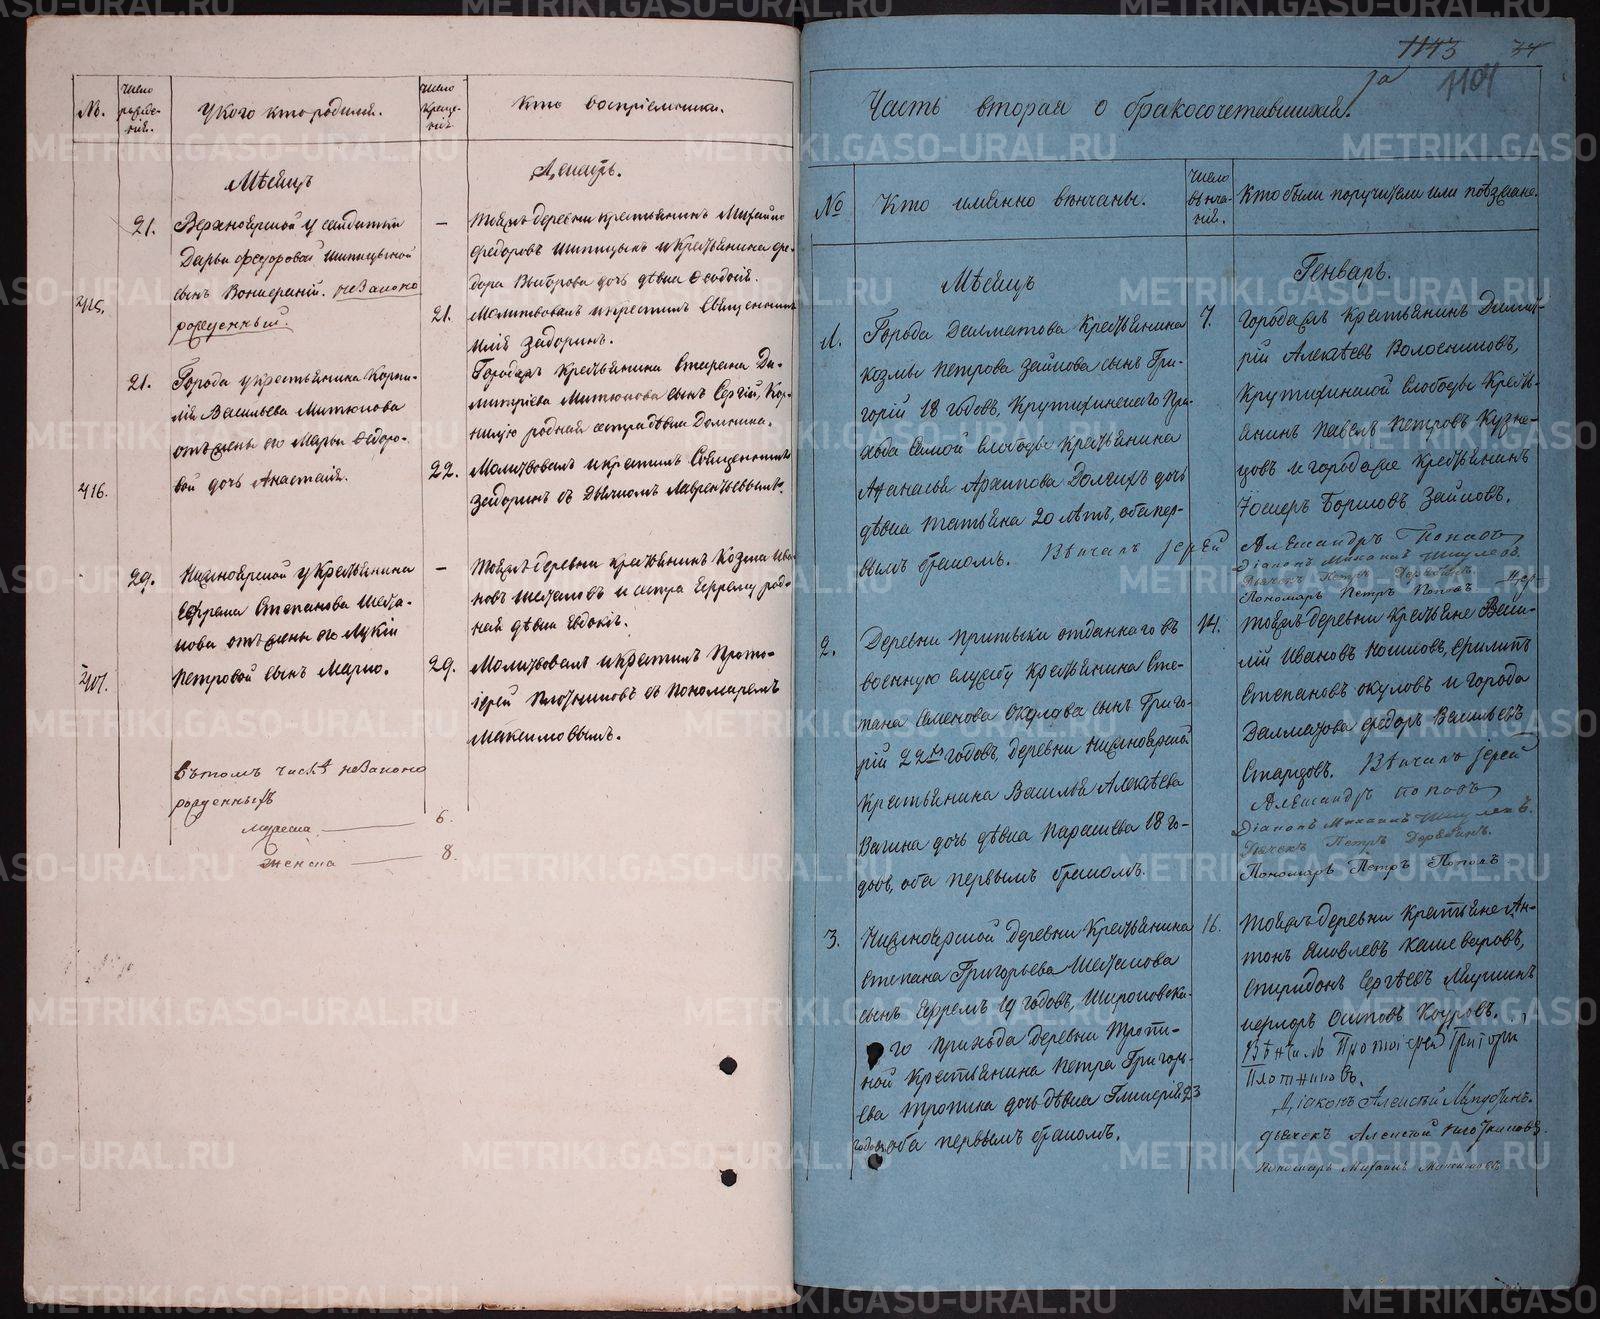 №.
число рожде-
ній.
У кого кто родился.
число креще-
ній.
Кто воспріемники.
Мѣсяцъ
Декабрь.
21.
Верхноярской у солдатки
Дарьи Федоровой Шипицыной
сынъ незаконо
рожденный.
415.
—
Той же деревни крестьянинъ Михайло
Федоровъ Шипицынъ и крестьянина Фе-
дора Выборова дочь дѣвка Ѳеодосія.
21.
Молитвовалъ и крестилъ Священникъ
Илія Задоринъ.
21.
Города у крестьянина Корни-
лія Васильева Митюнова
отъ жены его Марьи Ѳедоро-
вой дочь Анастасія.
416.
Города жъ крестьянина Стирана Ди-
митріева Митюнова сынъ Сергій, Кор-
нилію родная сестра дѣвка Домника.
22.
Молитвовалъ и крестилъ Священникъ
Задоринъ съ Дьячкомъ Лаврентьевымъ.
29.
Нижноярской у крестьянина
Ефрема Степанова Шета-
нова отъ жены его Лукіи
Петровой сынъ Марко.
417.
—
Той же деревни крестьянинъ Козма Ива-
новъ и сестра Ефрему род-
ная дѣвка Евдокія.
29.
Молитвовалъ и крестилъ Прото-
іерей Плотниковъ съ Пономаремъ
Максимовымъ.
Въ томъ числѣ незаконо
рожденныхъ
мужеска — 6.
женска — 8.
1143
34
1101
Часть вторая о бракосочетавшихся.
№
Кто имянно вѣнчаны.
Число
вѣнча-
ній.
Кто были поручители или поѣзжане.
Мѣсяцъ
Генварь.
1.
Города Далматова Крестьянина
Козмы Петрова Зайкова сынъ Гри-
горій 18 годовъ, Крутихинскаго При-
хода самой слободы крестьянина
Аѳанасья Архипова Долгихъ дочь
дѣвка Татьяна 20 лѣтъ, оба пер-
вымъ бракомъ.
7.
Города жъ Крестьянинъ Димит-
рій Алексѣевъ Волосниковъ,
Крутихинской слободы Кресть-
янинъ Павелъ Петровъ Кузне-
цовъ и города же крестьянинъ
Борисовъ Зайковъ.
Вѣнчалъ Іерей
Александръ Поповъ
Діаконъ Михаилъ
Дьячекъ Петръ Дерябинъ.
Пономарь Петръ Поповъ
2.
Деревни Притыки отданнаго въ
военную службу Крестьянина Сте-
пана Семенова Окулова сынъ Григо-
рій 22хъ годовъ, деревни Нижноярской
Крестьянина Василья Алексѣева
Вагина дочь дѣвка Парасковья 18 го-
довъ, оба первымъ бракомъ.
14.
Той жъ деревни Крестьяне Васи-
лій Ивановъ Кошковъ, Филипъ
Степановъ Окуловъ и города
Далматова Федоръ Васильевъ
Старцовъ. Вѣнчалъ Іерей
Александръ Поповъ
Діаконъ Михаилъ
Дьячекъ Петръ Дерябинъ.
Пономарь Петръ Поповъ
3.
Нижноярской деревни Крестьянина
Степана Григорьева
сынъ Ефремъ 19 годовъ, Широковска-
го прихода деревни Тропи-
ной Крестьянина Петра Григорь-
ева Тропина дочь дѣвка Гликерія 23
годовъ, оба первымъ бракомъ.
16.
Той жъ деревни Крестьяне Ан-
тонъ Яковлевъ Кашеваровъ,
Спиридонъ Сергѣевъ
Осиповъ
Вѣнчалъ Протоіерей Григорій
Плотниковъ.
Діаконъ Алексѣй
Дьячекъ Алексѣй Плотниковъ.
Пономарь Михаилъ Максимовъ
METRIKI.GASO-URAL.RU